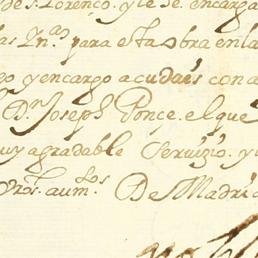 de S. Lorenço. y le se. encarga
as Yn.as para esta obra en la
go y encargo acudais con a
D.n Joseph Ponçe. el que
uy agradable Servizio. y
Vros. aum.tos De Madrid